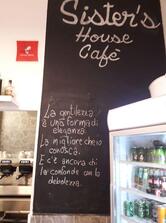 Sister's
House
Cafè
La gentilezza
è una forma di
eleganza.
La migliore che io
conosca.
E c'è ancora chi
la confonde con la
debolezza.